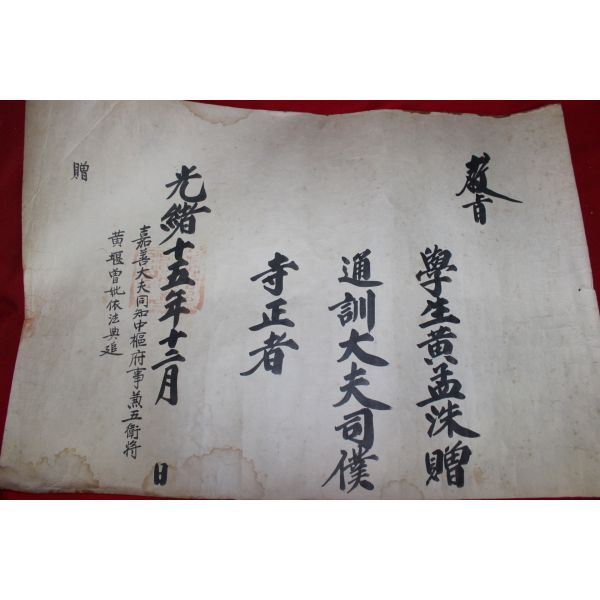 教旨
學生黃孟洙贈
通訓大夫司僕
寺正者
光緖十五年十二月 日
嘉善大夫同知中樞府事兼五衛將
黃堰曾妣依法典追
贈